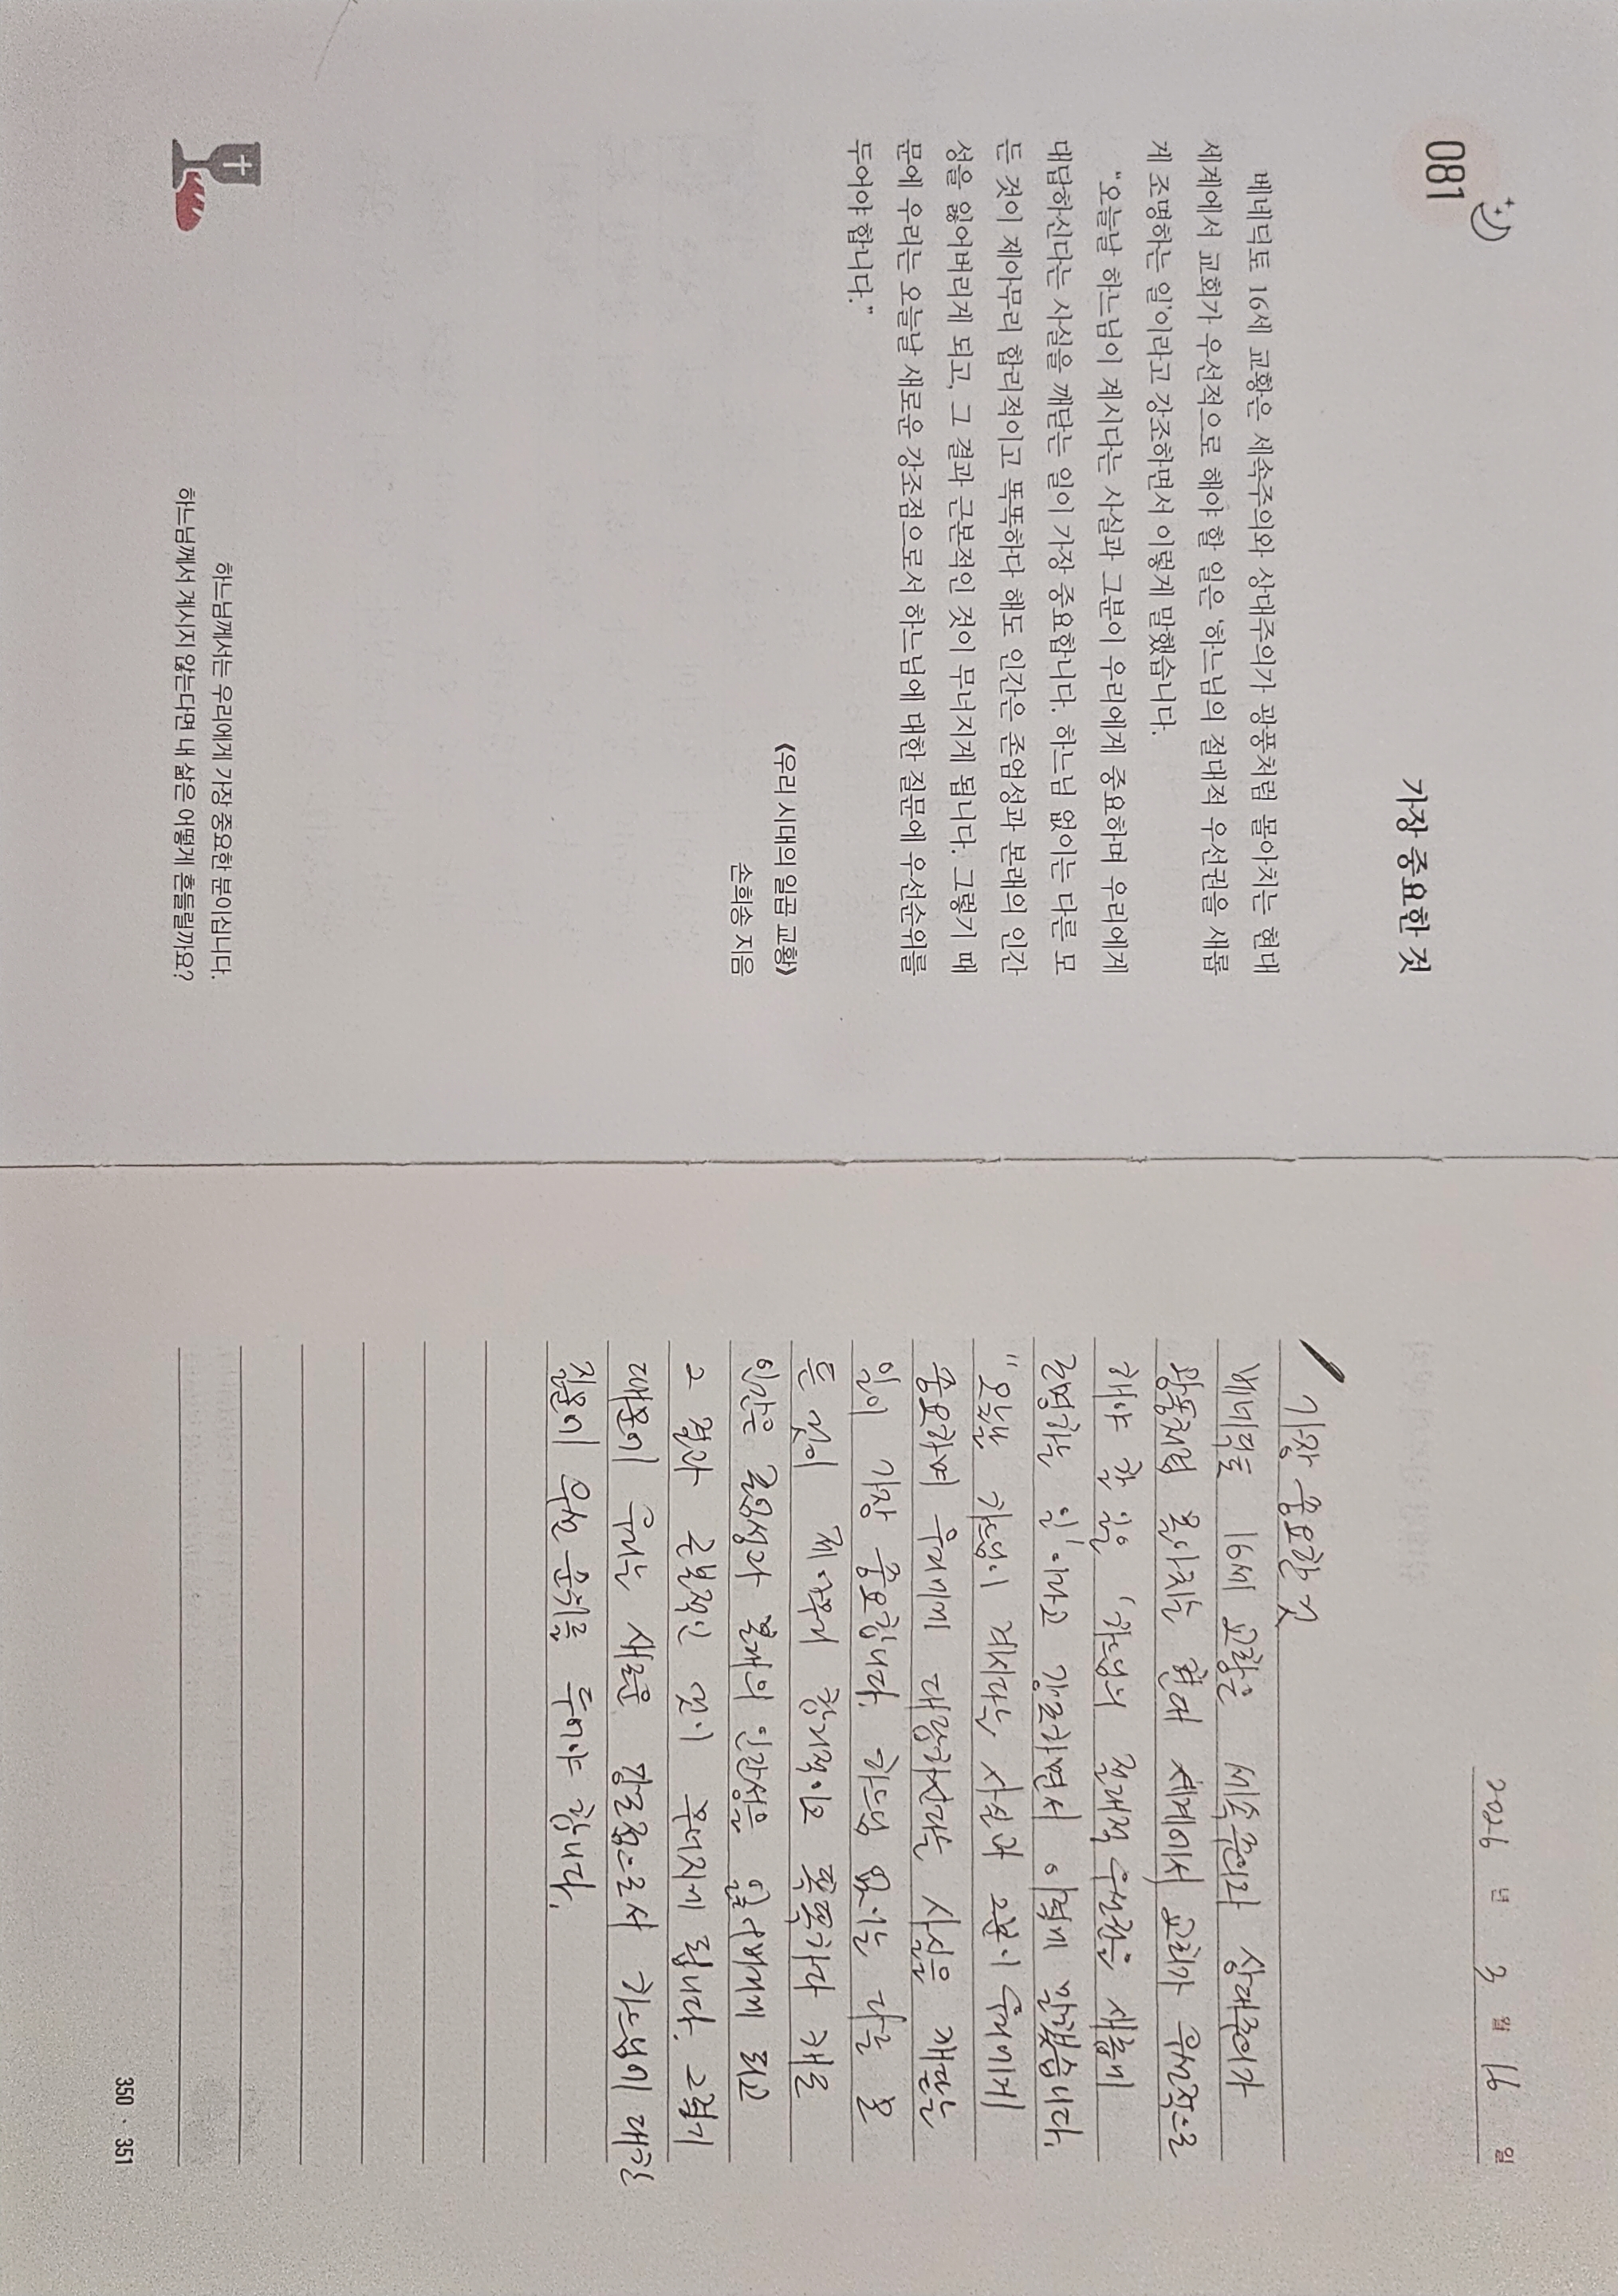 081
가장 중요한 것
베네딕토 16세 교황은 세속주의와 상대주의가 광풍처럼 몰아치는 현대
세계에서 교회가 우선적으로 해야 할 일은 ‘하느님의 절대적 우선권을 새롭
게 조명하는 일’이라고 강조하면서 이렇게 말했습니다.
“오늘날 하느님이 계시다는 사실과 그분이 우리에게 중요하며 우리에게
대답하신다는 사실을 깨닫는 일이 가장 중요합니다. 하느님 없이는 다른 모
든 것이 제아무리 합리적이고 똑똑하다 해도 인간은 존엄성과 본래의 인간
성을 잃어버리게 되고, 그 결과 근본적인 것이 무너지게 됩니다. 그렇기 때
문에 우리는 오늘날 새로운 강조점으로서 하느님에 대한 질문에 우선순위를
두어야 합니다.”
《우리 시대의 일곱 교황》
손희송 지음
하느님께서는 우리에게 가장 중요한 분이십니다.
하느님께서 계시지 않는다면 내 삶은 어떻게 흔들릴까요?
2026 년 3 월 16 일
가장 중요한 것
베네딕토 16세 교황은 세속주의와 상대주의가
광풍처럼 몰아치는 현대 세계에서 교회가 우선적으로
해야 할 일은 '하느님의 절대적 우선권을 새롭게
조명하는 일'이라고 강조하면서 이렇게 말했습니다.
"오늘날 하느님이 계시다는 사실과 그분이 우리에게
중요하며 우리에게 대답하신다는 사실을 깨닫는
일이 가장 중요합니다. 하느님 없이는 다른 모
든 것이 제 아무리 합리적이고 똑똑하다 해도
인간은 존엄성과 본래의 인간성을 잃어버리게 되고
그 결과 근본적인 것이 무너지게 됩니다. 그렇기
때문에 우리는 새로운 강조점으로서 하느님에 대한
질문에 우선 순위를 두어야 합니다.
350 · 351